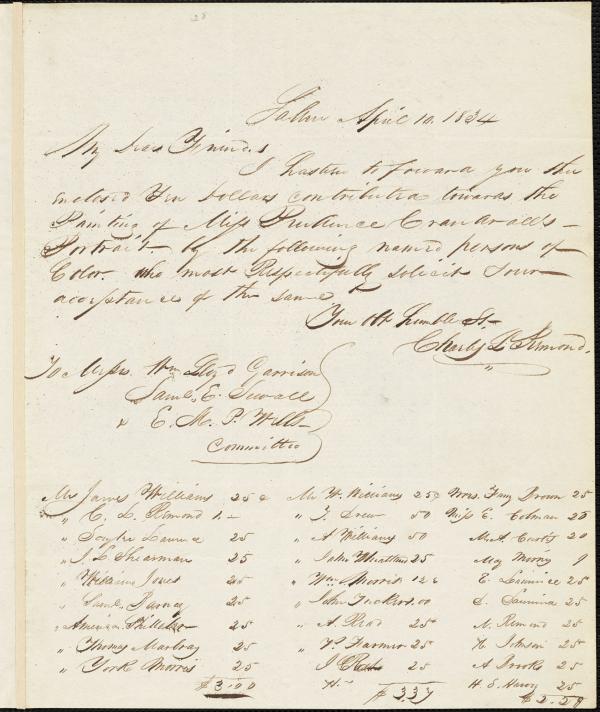 28
Salem April 10. 1834
My Dear Friends
I hasten to forward you the
enclosed Ten Dollars contributed towards the
Painting of Miss Prudence Crandall's
Portrait— by the following named persons of
Color. who most Respectfully solicit Your
acceptance of the same
Your Obt humble St.
Charles L. Remond.
To Messrs. Wm Lloyd Garrison
Saml. E. Sewall
& E. M. P. Wells
Committee
Mr James Williams 25 c
" C. L. Remond 1.—
" 25
" J. L. Shearman 25
" William Jones 25
" Saml. 25
" American 25
" Thomas 25
" York Morris 25
$3.00
Mr W. Williams 25c
" Drew 50
" A Williams 50
" John 25
" Wm Morris 12
" John
" A. Read 25
" Farmer 25
J. 25
H.
$3.37
Mrs. Fanny Brown 25
Miss E. Colman 25
20
9
E. 25
S. 25
M. Remond 25
Johnson 25
A. Brooks 25
H. E. 25
$2.29